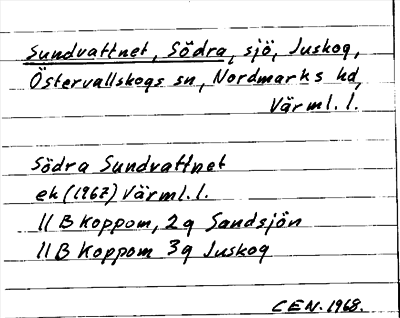 Sundvattnet, Södra, sjö, Juskog,
Östervallskogs sn, Nordmarks hd,
Värml. l.
Södra Sundvattnet
ek (1967) Värml. l.
11 B Koppom, 2g Sandsjön
11 B Koppom 3g Juskog
CEN. 1968.